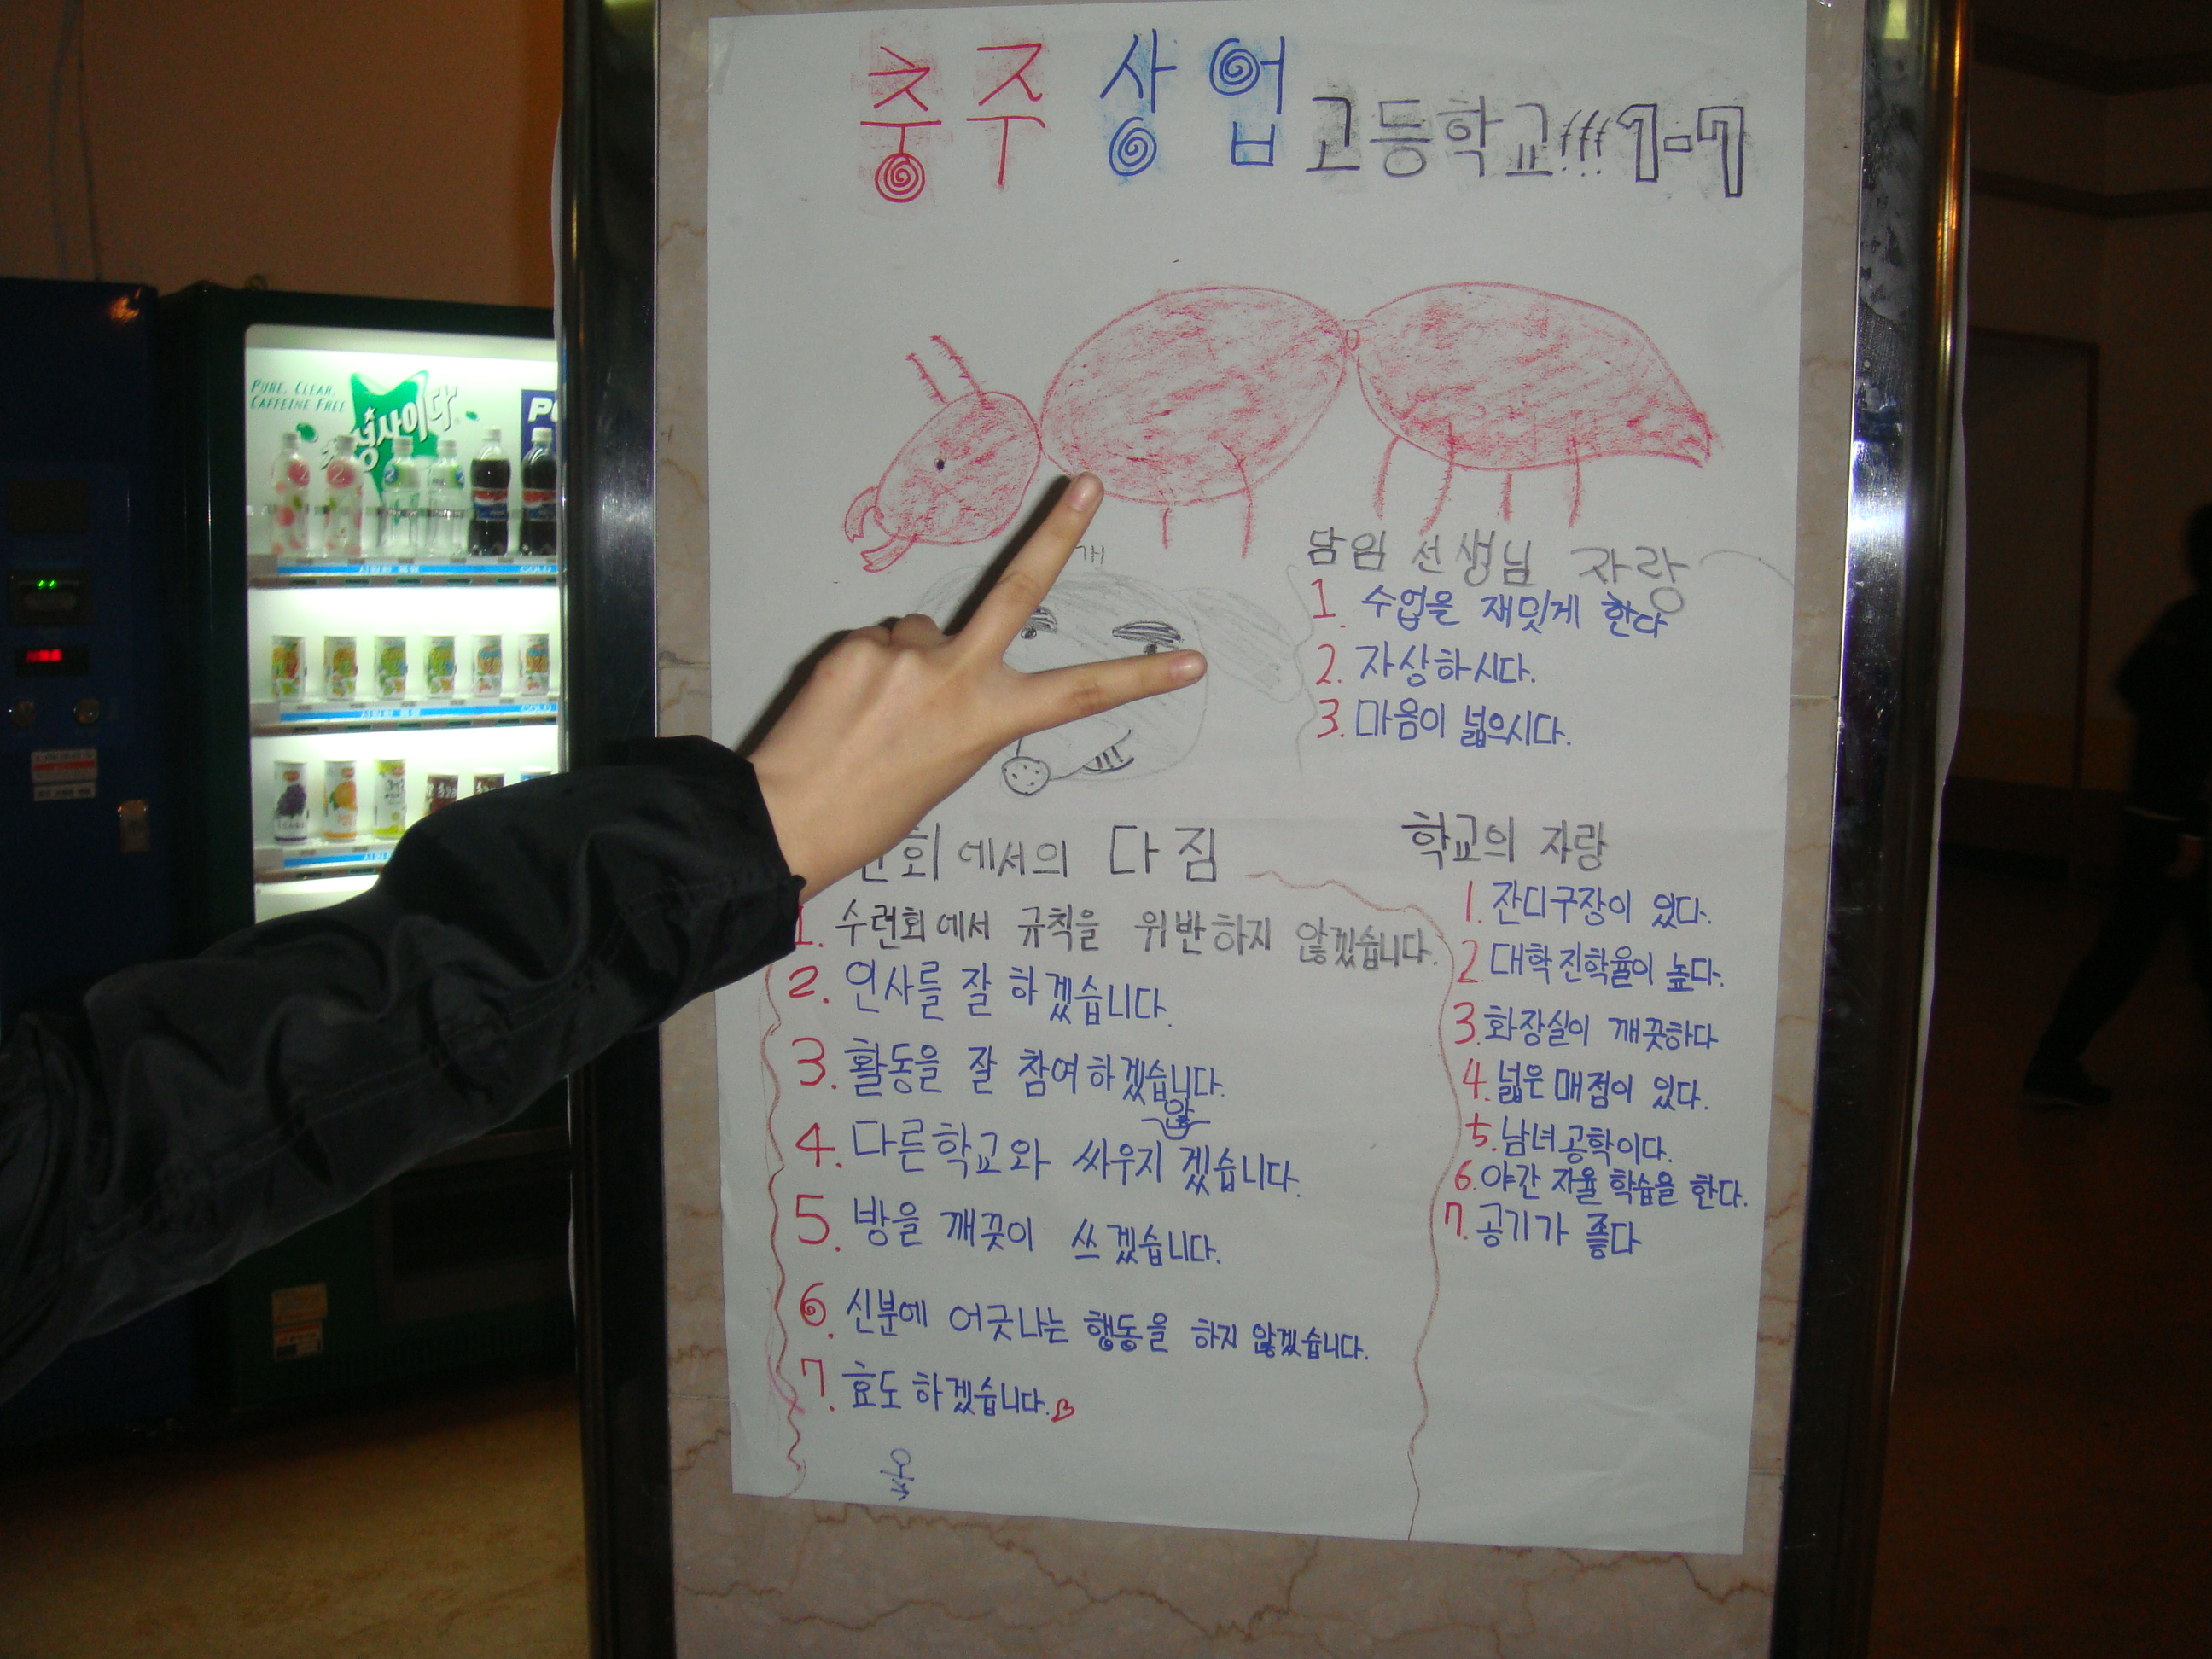 충주 상업 고등학교!!! 1-7
PURE, CLEAR,
CAFFEINE FREE
칠성사이다
개
담임 선생님 자랑
1. 수업을 재밌게 한다
2. 자상하시다.
3. 마음이 넓으시다.
회에서의 다짐
1. 수련회에서 규칙을 위반하지 않겠습니다.
2. 인사를 잘 하겠습니다.
3. 활동을 잘 참여하겠습니다.
4. 다른학교와 싸우지 않겠습니다.
5. 방을 깨끗이 쓰겠습니다.
6. 신분에 어긋나는 행동을 하지 않겠습니다.
7. 효도하겠습니다.
학교의 자랑
1. 잔디구장이 있다.
2 대학 진학율이 높다.
3. 화장실이 깨끗하다
4. 넓은 매점이 있다.
5. 남녀공학이다.
6. 야간 자율 학습을 한다.
7. 공기가 좋다